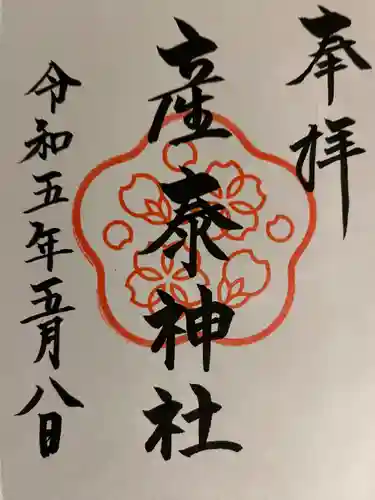 奉拝
産泰神社
令和五年五月八日